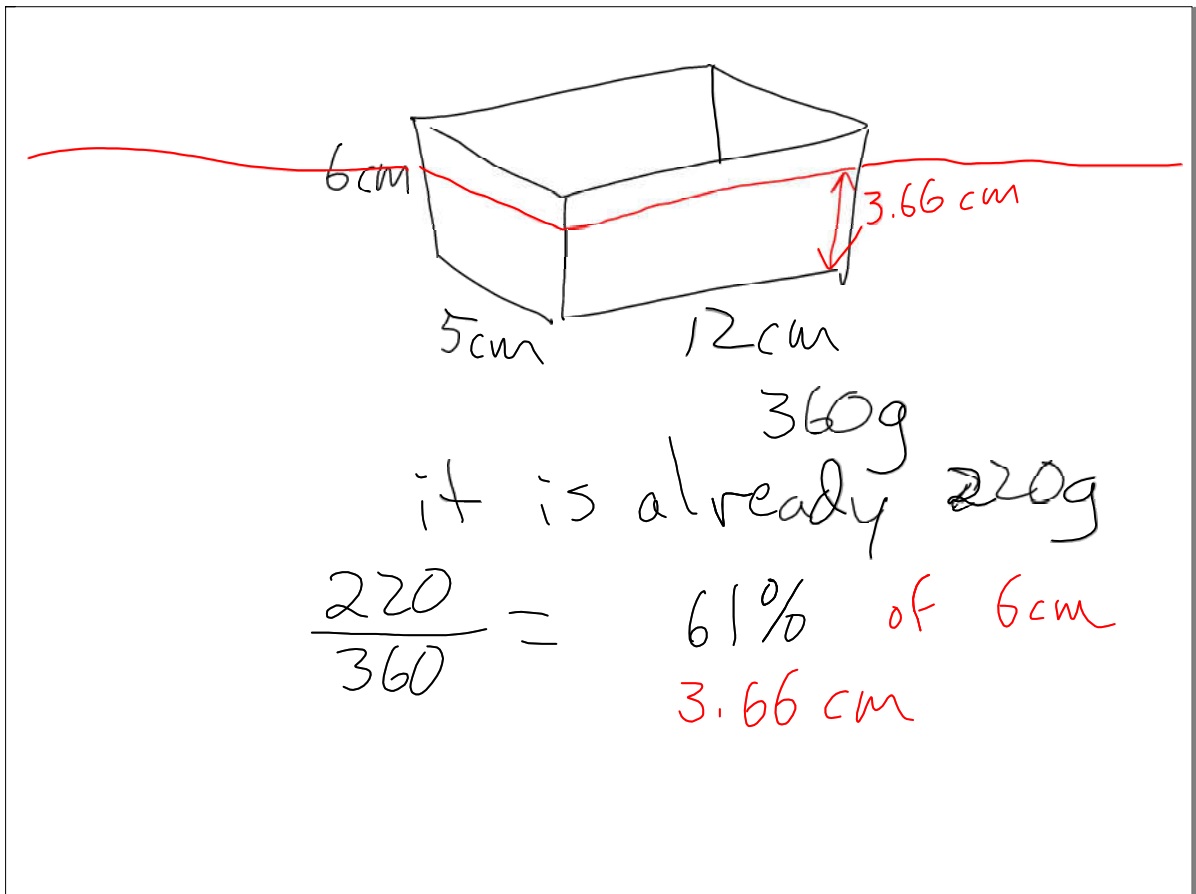 6cm
3.66 cm
5cm
12cm
360g
it is already 220g
220/360 = 61% of 6cm
3.66 cm